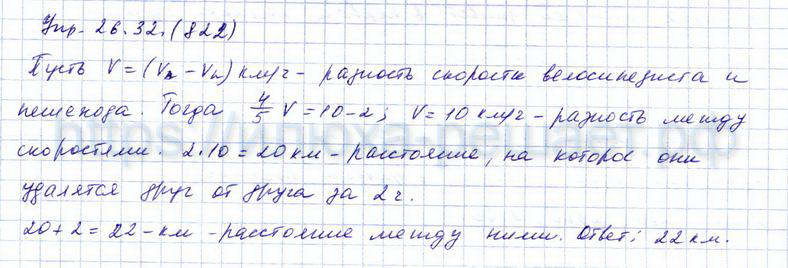 Упр. 26.32.(822)
Пусть V = (Vв - Vп) км/ч - разность скорости велосипедиста и
пешехода. Тогда 4/5 V = 10-2; V = 10 км/ч - разность между
скоростями. 2·10 = 20 км - расстояние, на которое они
удалятся друг от друга за 2 ч.
20 + 2 = 22 - км - расстояние между ними. Ответ: 22 км.